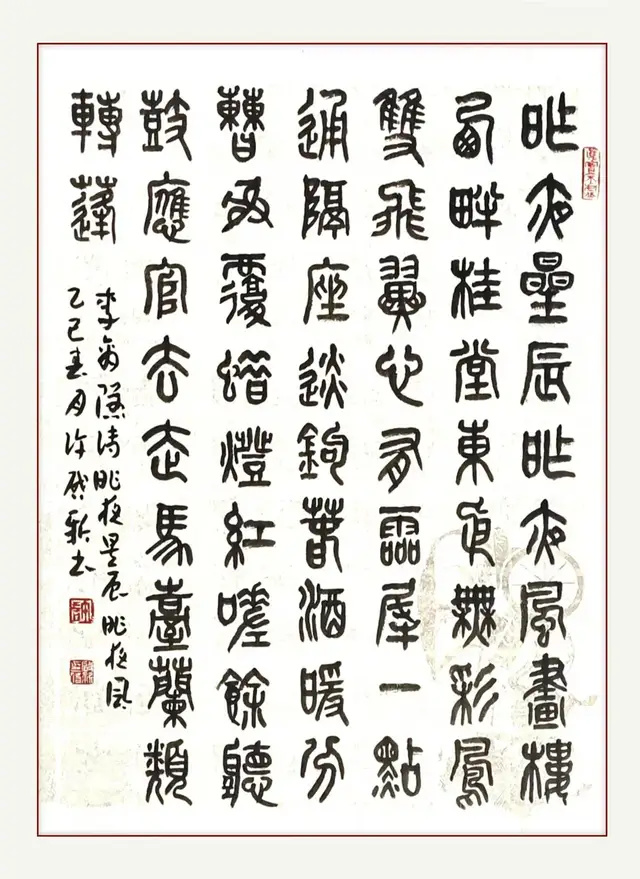 昨夜星辰昨夜風畫樓
西畔桂堂東身無彩鳳
雙飛翼心有靈犀一點
通隔座送鉤春酒暖分
曹射覆蜡燈紅嗟餘聽
鼓應官去走馬臺蘭類
轉蓬
李商隱詩昨夜星辰昨夜風
乙巳春月许書